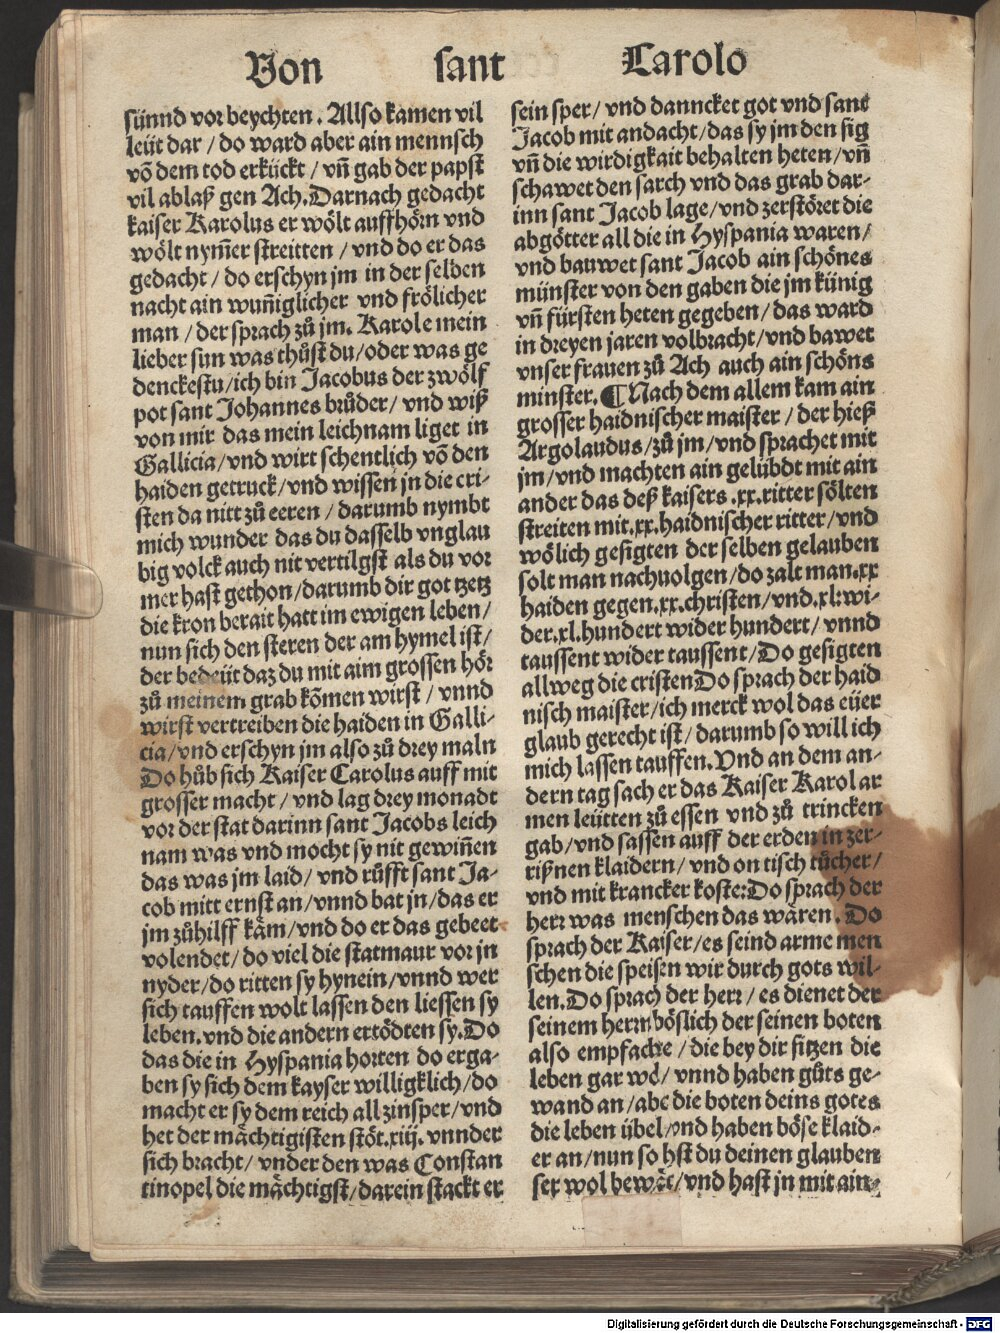 Von sant Carolo
sünnd vor beychten. Allso kamen vil
leüt dar / do ward aber ain mennsch
võ dem tod erkückt / vñ gab der papst
vil ablaß gen Ach. Darnach gedacht
kaiser Karolus er wölt auffhörn vnd
wölt nym̃er streitten / vnd do er das
gedacht / do erschyn jm in der selben
nacht ain wuñiglicher vnd frölicher
man / der sprach zů jm. Karole mein
lieber sun was thůst du / oder was ge
denckestu / ich bin Jacobus der zwölf
pot sant Johannes brůder / vnd wiß
von mir das mein leichnam liget in
Gallicia / vnd wirt schentlich võ den
haiden getruck / vnd wissen jn die cri-
sten da nitt zů eeren / darumb nymbt
mich wunder das du dasselb vnglau
big volck auch nit vertilgst als du vor
mer hast gethon / darumb dir got tzetz
die kron berait hatt im ewigen leben /
nun sich den steren der am hymel ist /
der bedeüt daz du mit aim grossen hör
zů meinem grab kõmen wirst / vnnd
wirst vertreiben die haiden in Galli-
cia / vnd erschyn jm also zů drey maln
Do hůb sich Kaiser Carolus auff mit
grosser macht / vnd lag drey monadt
vor der stat darinn sant Jacobs leich
nam was vnd mocht sy nit gewiñen
das was jm laid / vnd růfft sant Ja-
cob mitt ernst an / vnnd bat jn / das er
jm zůhilff käm / vnd do er das gebeet
volendet / do viel die statmaur vor jn
nyder / do ritten sy hynein / vnnd wer
sich tauffen wolt lassen den liessen sy
leben. vnd die andern ertödten sy. Do
das die in Hyspania horten do erga-
ben sy sich dem kayser willigklich / do
macht er sy dem reich all zinsper / vnd
het der mächtigisten stöt .xiij. vnnder
sich bracht / vnder den was Constan
tinopel die mächtigst / darein stackt er
sein sper / vnd danncket got vnd sant
Jacob mit andacht / das sy jm den sig
vñ die wirdigkait behalten heten / vñ
schawet den sarch vnd das grab dar-
inn sant Jacob lage / vnd zerstöret die
abgötter all die in Hyspania waren /
vnd bauwet sant Jacob ain schönes
münster von den gaben die jm künig
vñ fürsten heten gegeben / das ward
in dreyen jaren volbracht / vnd bawet
vnser frauen zů Ach auch ain schöns
minster. ¶ Nach dem allem kam ain
grosser haidnischer maister / der hieß
Argolaudus / zů jm / vnd sprachet mit
jm / vnd machten ain gelübdt mit ain
ander das deß kaisers .xx. ritter sölten
streiten mit .xx. haidnischer ritter / vnd
wölich gesigten der selben gelauben
solt man nachuolgen / do zalt man .xx
haiden gegen .xx. christen / vnd .xl: wi-
der .xl. hundert wider hundert / vnnd
taussent wider taussent / Do gesigten
allweg die cristen Do sprach der haid
nisch maister / ich merck wol das eüer
glaub gerecht ist / darumb so will ich
mich lassen tauffen. Vnd an dem an-
dern tag sach er das Kaiser Karol ar
men leütten zů essen vnd zů trincken
gab / vnd sassen auff der erden in zer-
rißnen klaidern / vnd on tisch tücher /
vnd mit krancker koste: Do sprach der
herr was menschen das wären. Do
sprach der Kaiser / es seind arme men
schen die speisen wir durch gots wil-
len. Do sprach der herr / es dienet der
seinem herrn böslich der seinen boten
also empfache / die bey dir sitzen die
leben gar wol / vnnd haben gůts ge-
wand an / abe die boten deins gotes
die leben übel / vnd haben böse klaid-
er an / nun so hst du deinen glauben
ser wol bewät / vnd hast jn mit ain-
Digitalisierung gefördert durch die Deutsche Forschungsgemeinschaft - DFG